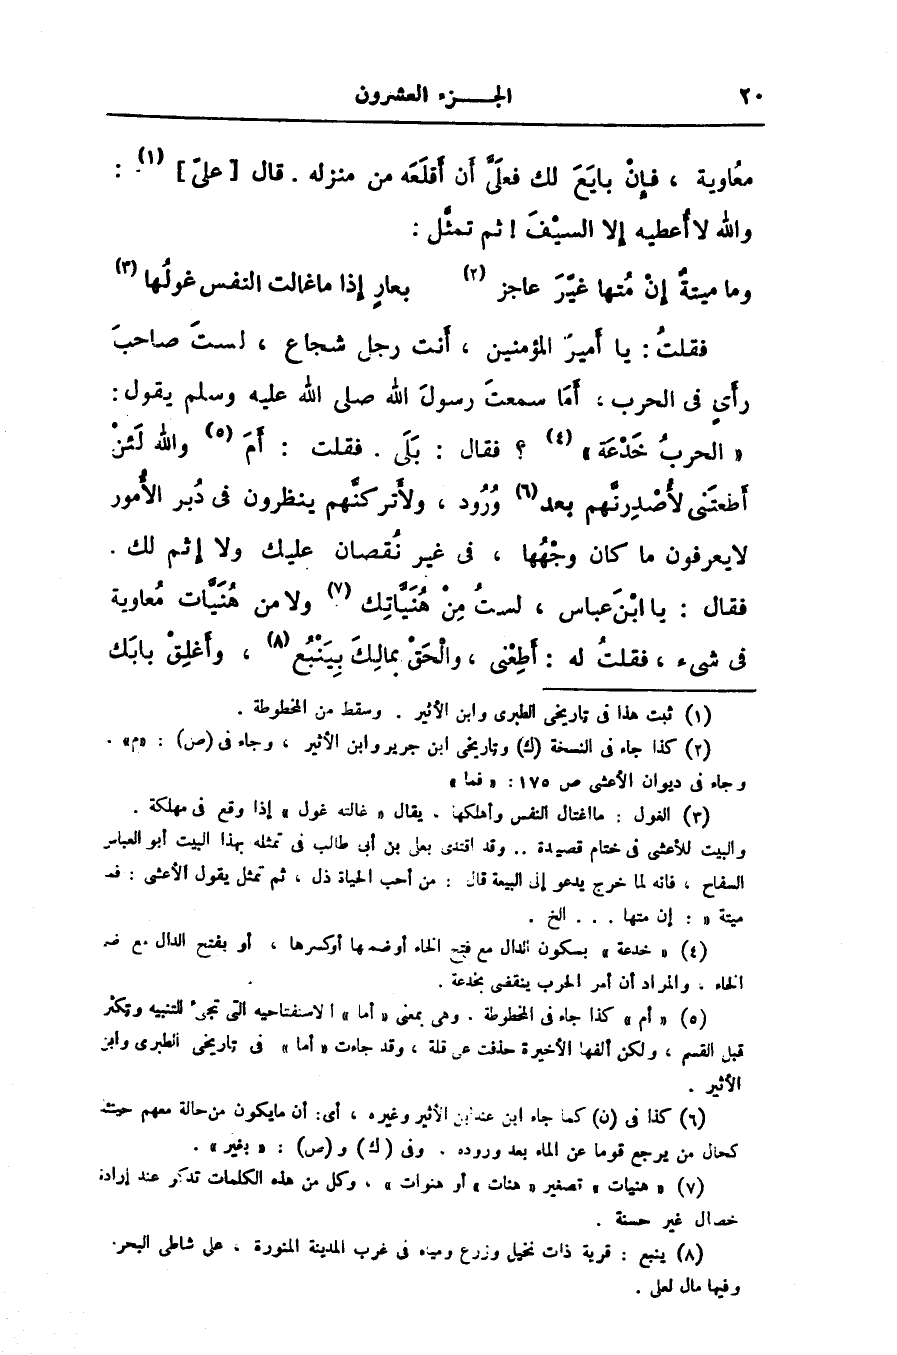 ٢٠ الجـــزء العشرون
معُاوية ، فإنْ بايَعَ لك فعلَىَّ أن أقلَعَه من منزله . قال [ علىّ ] (١) :
والله لا أعطيه إلا السيْفَ ! ثم تمثَّل :
وما ميتةٌ إنْ مُتها غيَّرَ عاجز (٢) بعارٍ إذا ماغالت النفس غولُها (٣)
فقلتُ : يا أميرَ المؤمنين ، أنت رجل شجاع ، لستَ صاحبَ
رأىٍ فى الحرب ، أمَا سمعتَ رسولَ الله صلى الله عليه وسلم يقول :
« الحربُ خَدْعَة » (٤) ؟ فقال : بَلَى . فقلت : أمَ (٥) والله لَئنْ
أطعتَنى لأُصْدِرنَّهم بعد (٦) وُرُود ، ولأتركنَّهم ينظرون فى دُبر الأُمور
لايعرفون ما كان وجْهُها ، فى غير نُقصان عليك ولا إثم لك .
فقال : يا ابْنَ عباس ، لستُ مِنْ هُنَيَّاتِك (٧) ولا من هُنَيَّات مُعاوية
فى شىء ، فقلتُ له : أطِعْنى ، والْحَقْ بمالِكَ بِيَنْبُع (٨) ، وأغلِقْ بابَك
(١) ثبت هذا فى تاريخى الطبرى وابن الأثير . وسقط من المخطوطة .
(٢) كذا جاء فى النسخة (ك) وتاريخى ابن جرير وابن الأثير ، وجاء فى (ص) : «م» .
وجاء فى ديوان الأعشى ص ١٧٥ : « فما »
(٣) الغول : مااغتال النفس وأهلكها . يقال « غالته غول » إذا وقع فى مهلكة .
والبيت للأعشى فى ختام قصيدة .. وقد اقتدى بعلى بن أبى طالب فى تمثله بهذا البيت أبو العباس
السفاح ، فانه لما خرج يدعو إلى البيعة قال : من أحب الحياة ذل ، ثم تمثل يقول الأعشى : فما
ميتة « : إن متها . . . الخ .
(٤) « خدعة » بسكون الدال مع فتح الحاء أوضمها أوكسرها ، أو بفتح الدال مع ضم
الحاء . والمراد أن أمر الحرب ينقضى بخدعة .
(٥) « أم » كذا جاء فى المخطوطة . وهى بمعنى « أما » الاستفتاحيه التى تجىء للتنبيه وتكثر
قبل القسم ، ولكن ألفها الأخيرة حذفت عن قلة ، وقد جاءت « أما » فى تاريخى الطبرى وابن
الأثير .
(٦) كذا فى (ن) كما جاء ابن عند ابن الأثير وغيره ، أى : أن مايكون من حالة معهم حيث
كحال من يرجع قوما عن الماء بعد وروده . وفى (ك) و (ص) : « بغير » .
(٧) « هنيات » تصغير « هنات » أو هنوات » ، وكل من هذه الكلمات تذكر عند إرادة
خصال غير حسنة .
(٨) ينبع : قرية ذات نخيل وزرع ومياه فى غرب المدينة المنورة ، على شاطى البحر .
وفيها مال لعلى .